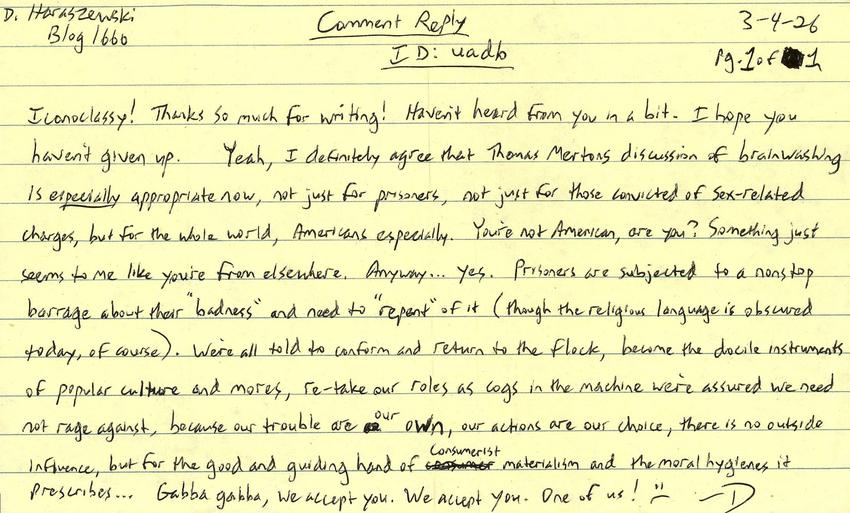 D. Haraszewski
Blog 1660
Comment Reply
ID: uadb
3-4-26
Pg. 1 of 1
Iconoclassy! Thanks so much for writing! Haven't heard from you in a bit. I hope you
haven't given up. Yeah, I definitely agree that Thomas Mertons discussion of brainwashing
is especially appropriate now, not just for prisoners, not just for those convicted of sex-related
charges, but for the whole world, Americans especially. You're not American, are you? Something just
seems to me like you're from elsewhere. Anyway... yes. Prisoners are subjected to a nonstop
barrage about their "badness" and need to "repent" of it (though the religious language is obscured
today, of course). We're all told to conform and return to the flock, become the docile instruments
of popular culture and mores, re-take our roles as cogs in the machine we're assured we need
not rage against, because our trouble are our own, our actions are our choice, there is no outside
influence, but for the good and guiding hand of consumerist materialism and the moral hygienes it
prescribes... Gabba gabba, we accept you. We accept you. One of us! —D